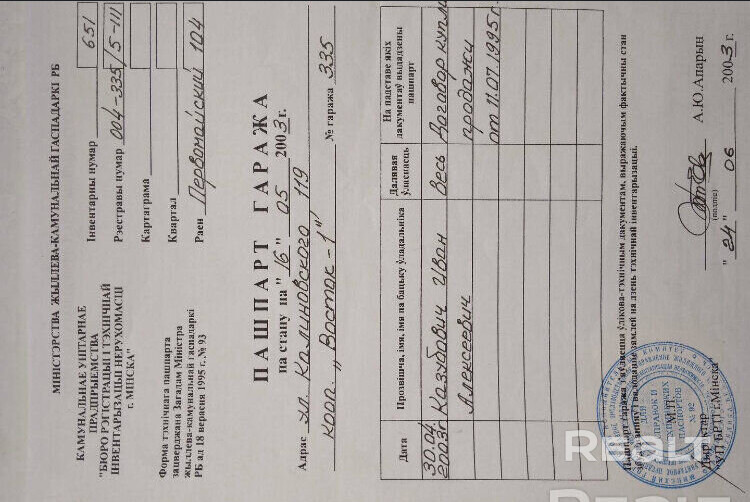 МІНІСТЭРСТВА ЖЫЛЛЁВА-КАМУНАЛЬНАЙ ГАСПАДАРКІ РБ
КАМУНАЛЬНАЕ УНІТАРНАЕ
ПРАДПРЫЕМСТВА
"БЮРО РЭГІСТРАЦЫІ І ТЭХНІЧНАЙ
ІНВЕНТАРЫЗАЦЫІ НЕРУХОМАСЦІ
г. МІНСКА"
Форма тэхнічнага пашпарта
зацверджана Загадам Міністра
жыллёва-камунальнай гаспадаркі
РБ ад 18 верасня 1995 г. № 93
Інвентарны нумар 651
Рэестравы нумар 004-335/5-III
Картаграма
Квартал
Раен Первомайский 104
ПАШПАРТ ГАРАЖА
па стану на "16" 05 2003г.
Адрас ул. Калиновского 119
кооп. "Восток-1" № гаража 335
Дата
Прозвішча, імя, імя па бацьку ўладальніка
Далявая ўласнасць
На падставе якіх дакументаў выдадзены пашпарт
30.04. Казубович Иван Весь Договор купли
2003г. Алексеевич продажи
от 11.07.1995г.
Пашпарт гаража з'яўляецца ўлікова-тэхнічным дакументам, выражаючым фактычны стан
будынка і валодання зямлёй на дзень тэхнічнай інвентарызацыі.
М.П.
Дырэктар
КУП БРТІ г.Мінска"
(подпіс)
А.Ю.Апарын
"24" 06 2003 г.
ДЛЯ
СПРАВОК И
ТЕХНИЧЕСКИХ
ПАСПОРТОВ
№ 92
Realt
Realt